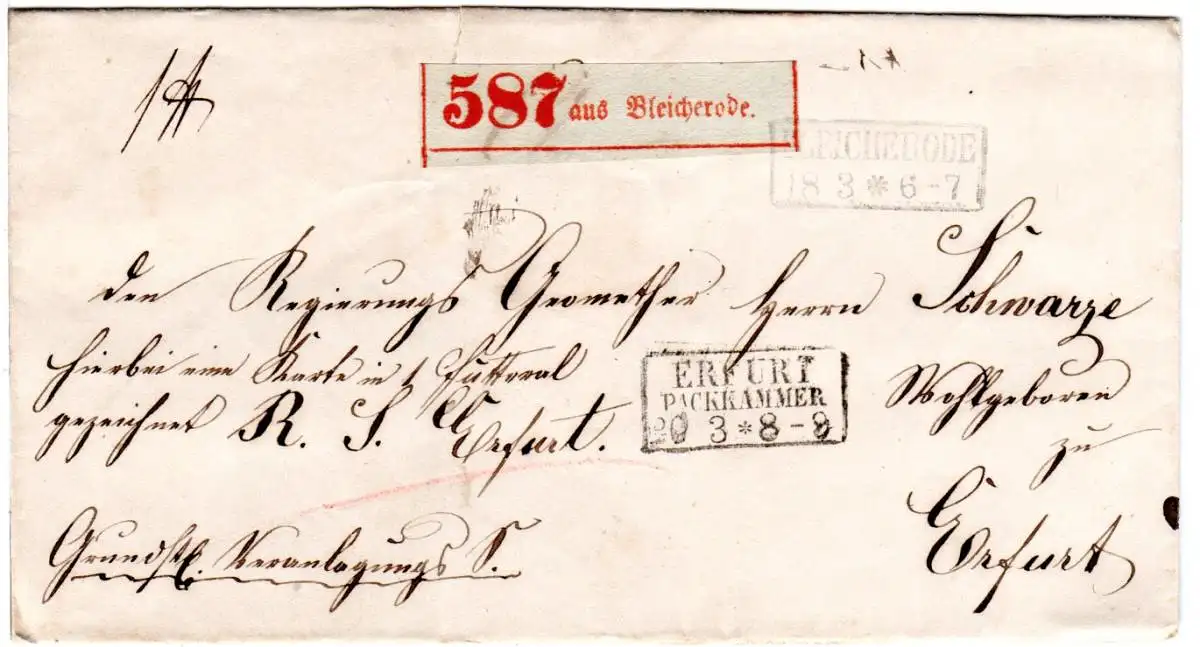 587 aus Bleicherode.
BLEICHERODE
18 3 * 6-7
Den Regierungs Geomether Herrn Schwarze
Hierbei eine Karte in 1 Futteral
Wohlgeboren
gezeichnet R. S. Erfurt.
ERFURT
PACKKAMMER
20 3 * 8-9
zu
Erfurt
Grundst. Veranlagungs S.